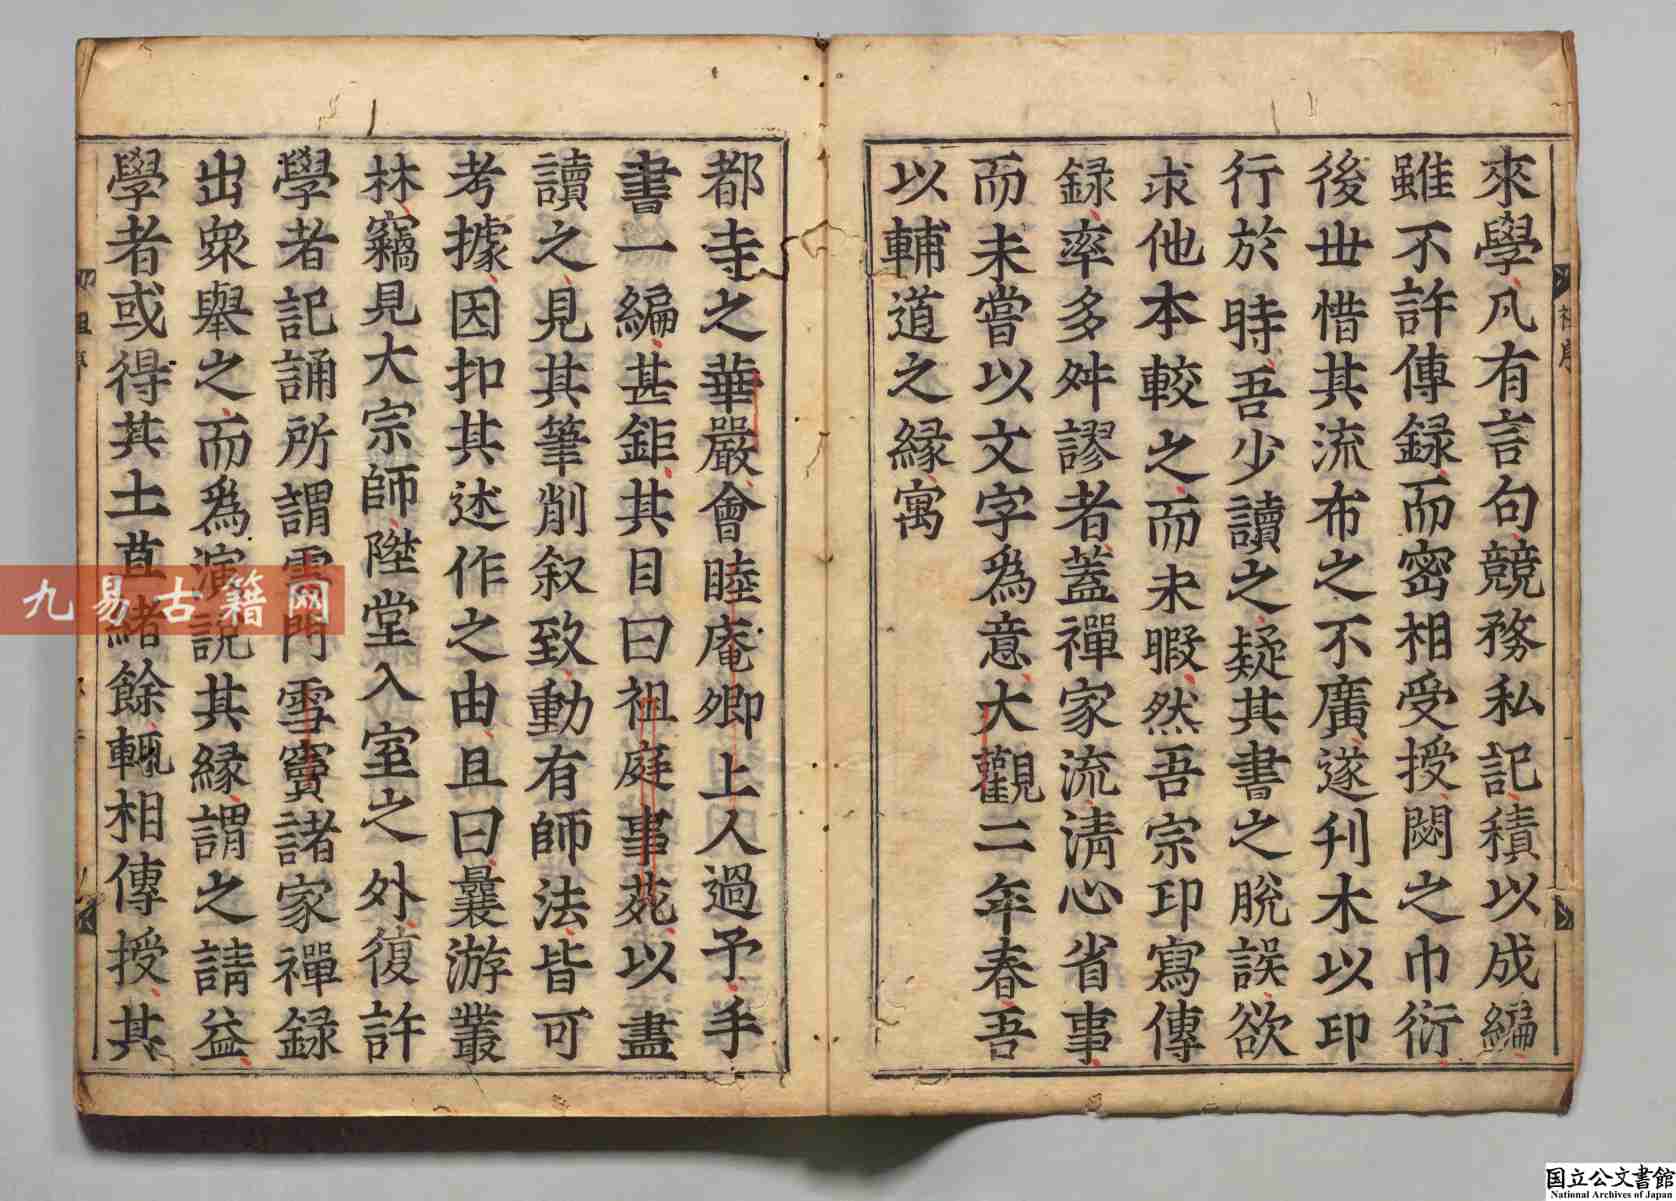 來學凡有言句競務私記積以成編
雖不許傳録而密相受授閟之巾衍
後世惜其流布之不廣遂刋木以印
行於時吾少讀之疑其書之脫誤欲
求他本較之而未暇然吾宗印寫傳
録率多舛謬者蓋禪家流清心省事
而未嘗以文字爲意大觀二年春吾
以輔道之縁寓
都寺之華嚴會睦庵卿上人過予手
書一編甚鉅其目曰祖庭事苑以盡
讀之見其筆削叙致動有師法皆可
考據因扣其述作之由且曰曩游叢
林竊見大宗師陞堂入室之外復許
學者記誦所謂雲門雪竇諸家禪録
出衆舉之而爲演説其縁謂之請益
學者或得其土苴緒餘輒相傳授其
九易古籍网
国立公文書館
National Archives of Japan